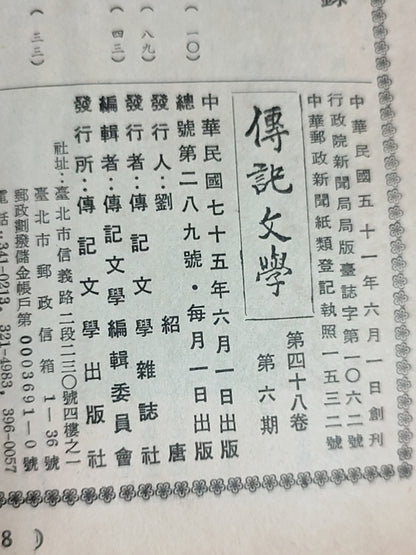 中華民國五十一年六月一日創刊
行政院新聞局局版臺誌字第一〇六二號
中華郵政新聞紙類登記執照一五三二號
傳記文學
第四十八卷
第六期
中華民國七十五年六月一日出版
總號第二八九號・每月一日出版
發行人：劉紹唐
發行者：傳記文學雜誌社
編輯者：傳記文學編輯委員會
發行所：傳記文學出版社
社址：臺北市信義路二段二三〇號四樓之一
臺北市郵政信箱1—36號
郵政劃撥儲金帳戶第0003691—0號
電話：341-0213, 321-4983, 396-0057
（一〇）
（八九）
（四三）
（三三）
8 )